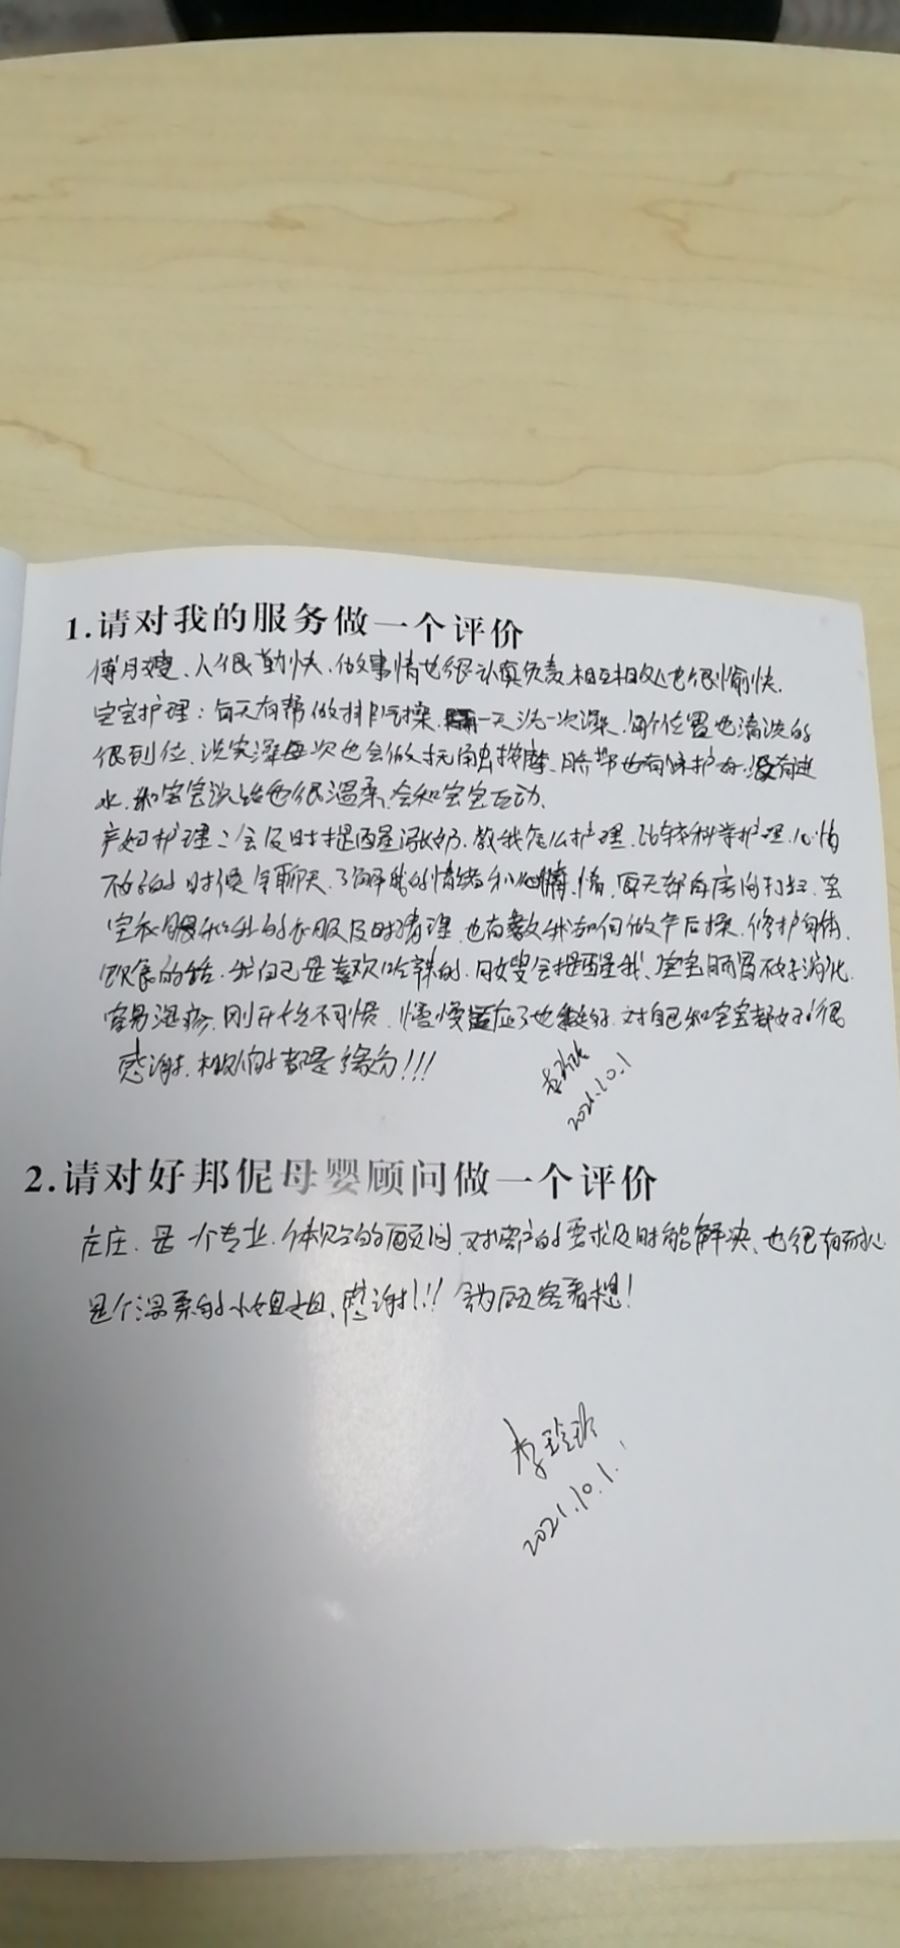 1.请对我的服务做一个评价
傅月嫂、人很勤快、做事情也很认真负责,相互相处也很愉快.
宝宝护理：每天有帮做排气操.一天洗一次澡.每个位置也清洗的
很到位.洗完澡每次也会做抚触按摩、脐带也有保护好.没有进
水.和宝宝说话也很温柔,会和宝宝互动、
产妇护理：会及时提醒涨奶.教我怎么护理.比较科学护理.心情
不好的时候会聊天.了解我的情绪和心情.每天都有房间打扫.宝
宝衣服和我的衣服及时清理.也有教我如何做产后操.修护身体.
饮食的话.我自己是喜欢吃辣的.月嫂会提醒我、宝宝肠胃不好消化
容易湿疹.刚开始不习惯.慢慢适应了也挺好.对自己和宝宝都好!很
感谢.相遇的都是缘分!!!
2021.10.1
2.请对好邦伲母婴顾问做一个评价
庄庄.是一个专业.体贴的顾问.对客户的要求及时能解决、也很有耐心
是个温柔的小姐姐、感谢!!! 会为顾客着想!
李玲
2021.10.1.